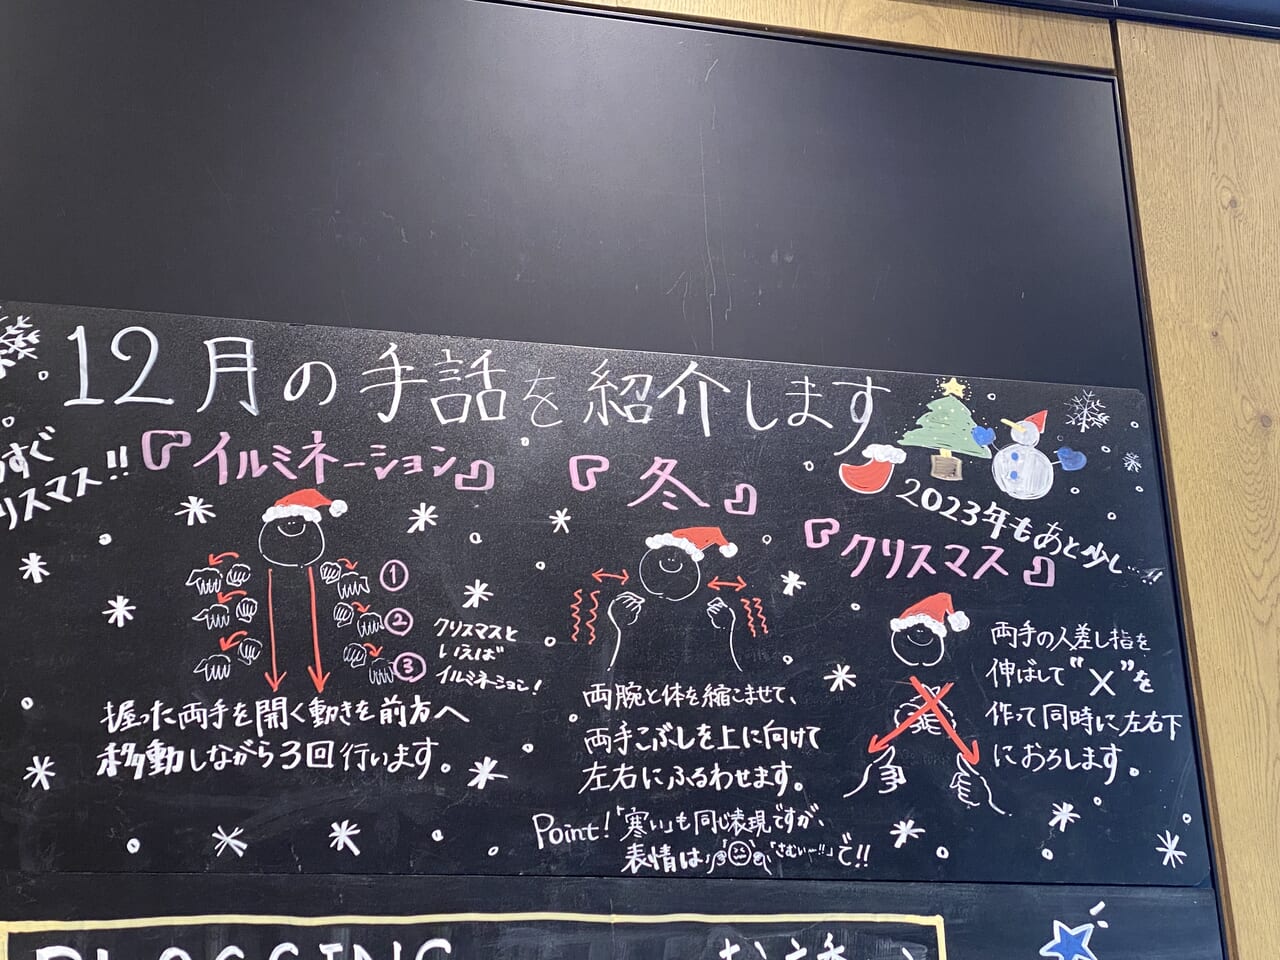 12月の手話を紹介します
うすぐ
リスマス!!
『イルミネーション』
①
②
③
クリスマスと
いえば
イルミネーション!
握った両手を開く動きを前方へ
移動しながら3回行います。
『冬』
両腕と体を縮こませて、
両手こぶしを上に向けて
左右にふるわせます。
Point!「寒い」も同じ表現ですが、
表情は「さむいー!!」で!!
2023年もあと少し…!!
『クリスマス』
両手の人差し指を
伸ばして"X"を
作って同時に左右下
におろします。